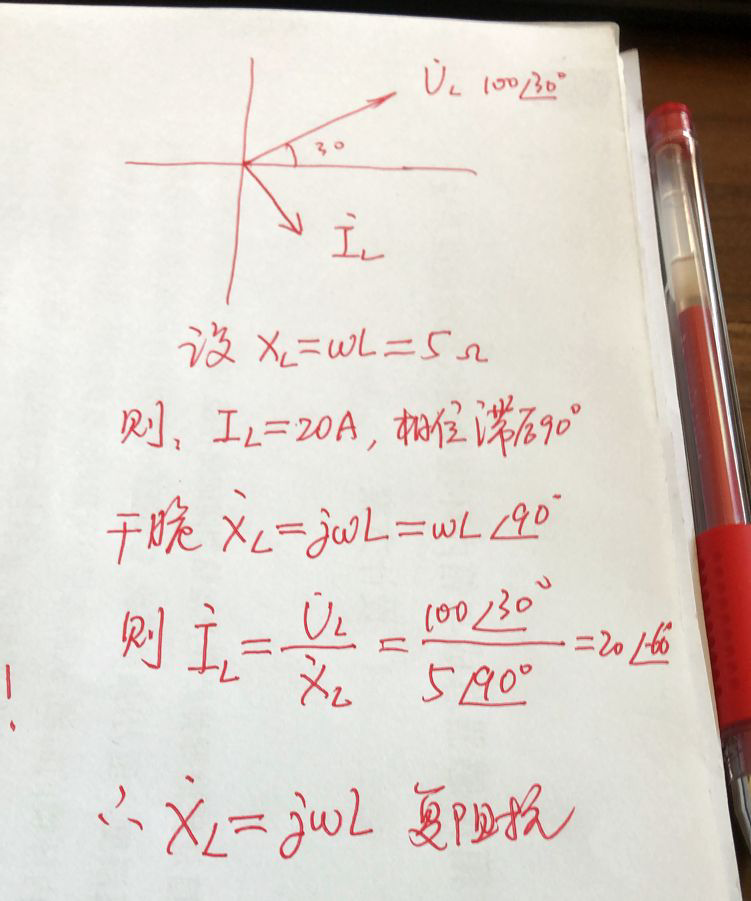 U̇L 100∠30°
30
İL
设 XL=ωL=5Ω
则, IL=20A, 相位滞后90°
干脆 ẊL=jωL=ωL∠90°
则 İL = U̇L/ẊL = 100∠30°/5∠90° =20∠-60°
!
∴ ẊL=jωL 复阻抗